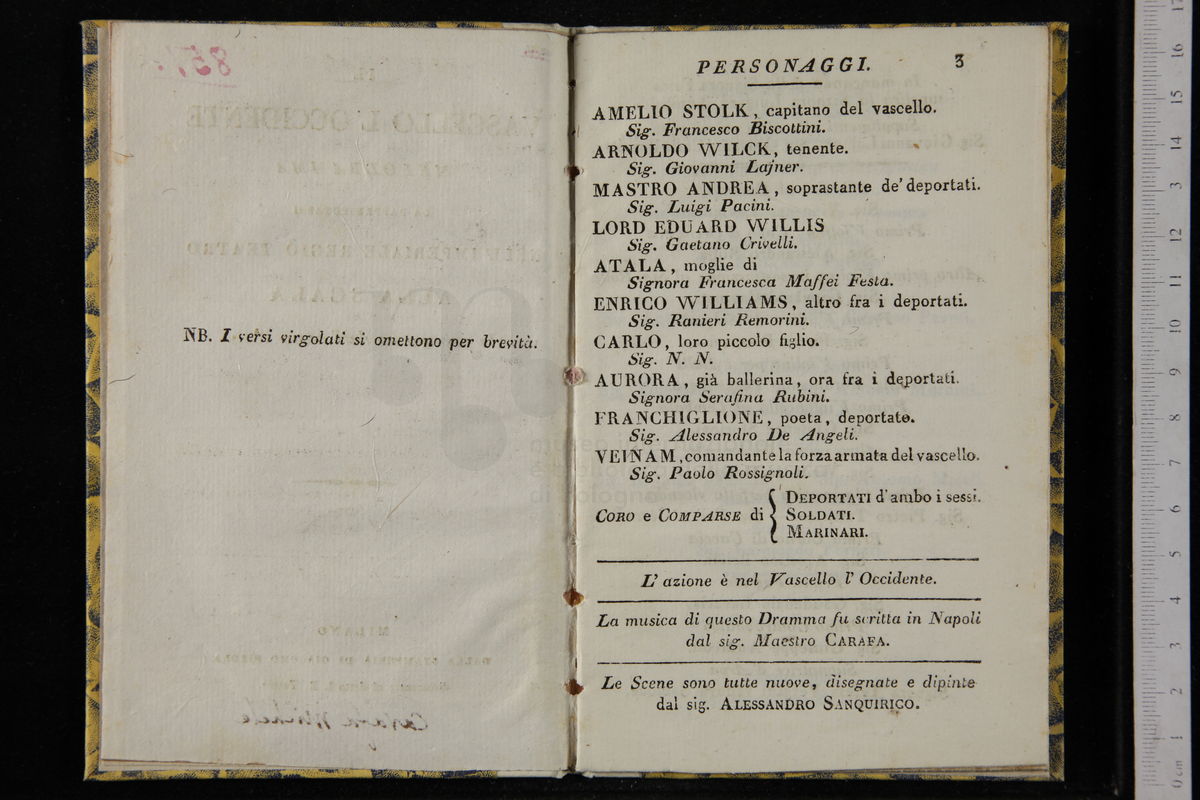 NB. I versi virgolati si omettono per brevità.
PERSONAGGI. 3
AMELIO STOLK, capitano del vascello.
Sig. Francesco Biscottini.
ARNOLDO WILCK, tenente.
Sig. Giovanni Lajner.
MASTRO ANDREA, soprastante de' deportati.
Sig. Luigi Pacini.
LORD EDUARD WILLIS
Sig. Gaetano Crivelli.
ATALA, moglie di
Signora Francesca Maffei Festa.
ENRICO WILLIAMS, altro fra i deportati.
Sig. Ranieri Remorini.
CARLO, loro piccolo figlio.
Sig. N. N.
AURORA, già ballerina, ora fra i deportati.
Signora Serafina Rubini.
FRANCHIGLIONE, poeta, deportato.
Sig. Alessandro De Angeli.
VEINAM, comandante la forza armata del vascello.
Sig. Paolo Rossignoli.
CORO e COMPARSE di { DEPORTATI d'ambo i sessi.
SOLDATI.
MARINARI.
L' azione è nel Vascello l' Occidente.
La musica di questo Dramma fu scritta in Napoli
dal sig. Maestro CARAFA.
Le Scene sono tutte nuove, disegnate e dipinte
dal sig. ALESSANDRO SANQUIRICO.
0 cm 1 2 3 4 5 6 7 8 9 10 11 12 13 14 15 16 17